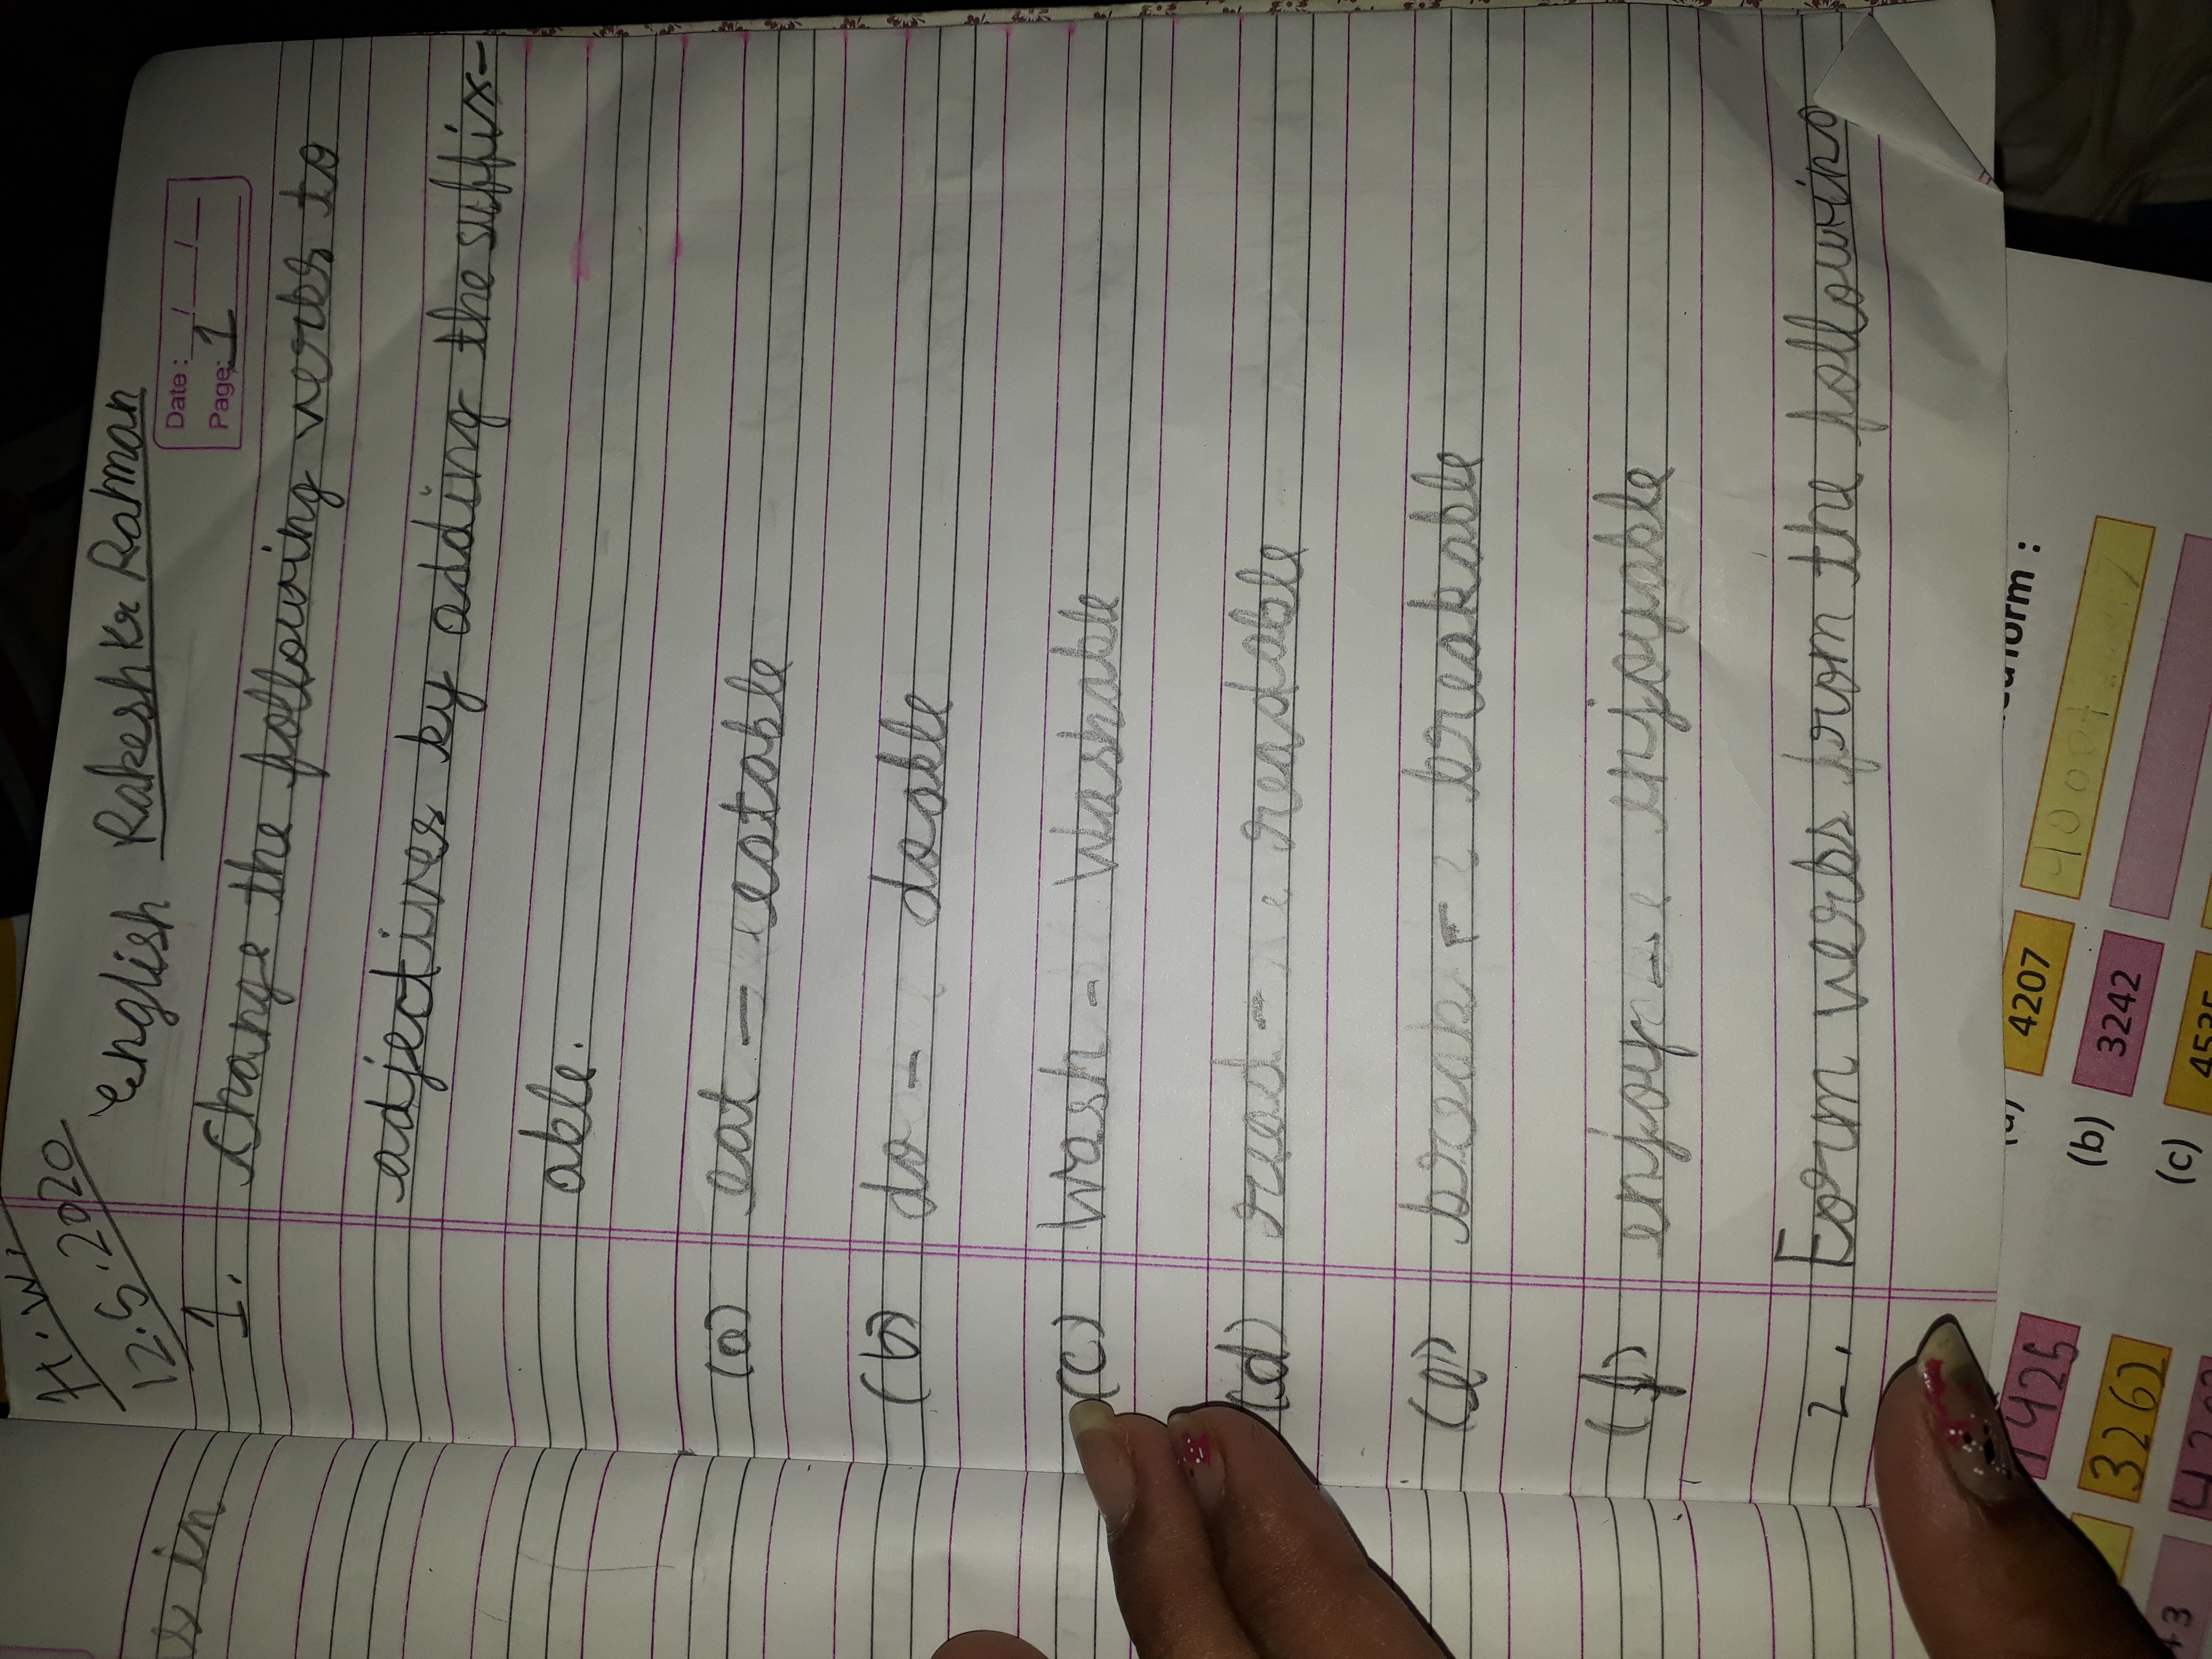 s in
H.W.
12.5.2020
English Rakesh Kr Raman
Date: / /
Page: 1
1. Change the following verbs to
adjectives by adding the suffix-
able.
(a) eat - eatable
(b) do - doable
(c) Wash - Washable
(d) read - readable
(e) break - breakable
(f) enjoy - enjoyable
2. Form verbs from the following
form :
1425
(a) 4207
3262
(b) 3242
(c) 4535